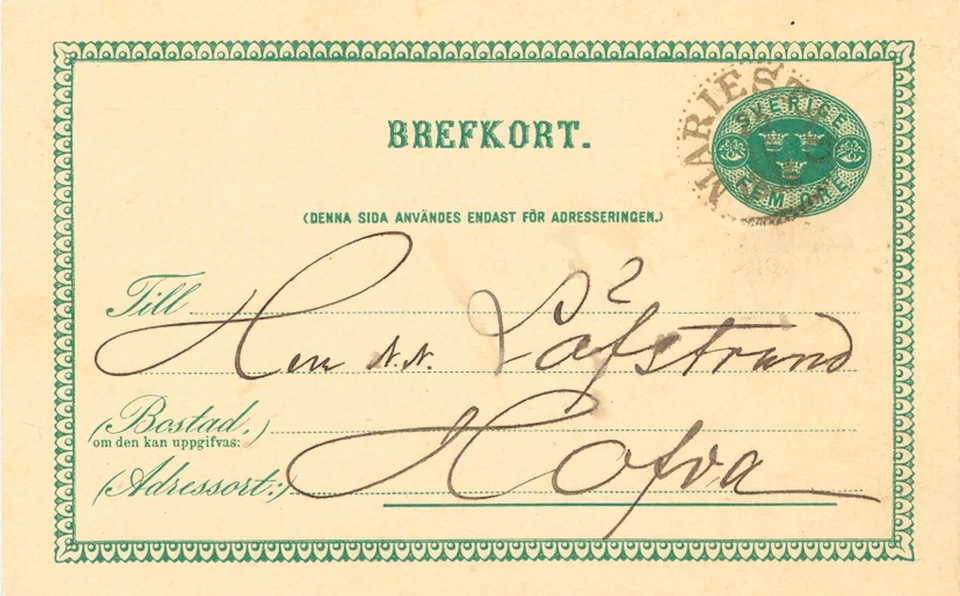 BREFKORT.
SVERIGE
FEM ÖRE
MARIEST
(DENNA SIDA ANVÄNDES ENDAST FÖR ADRESSERINGEN.)
Till Herr N.N. Löfstrand
(Bostad,)
om den kan uppgifvas:
(Adressort:) Hofva